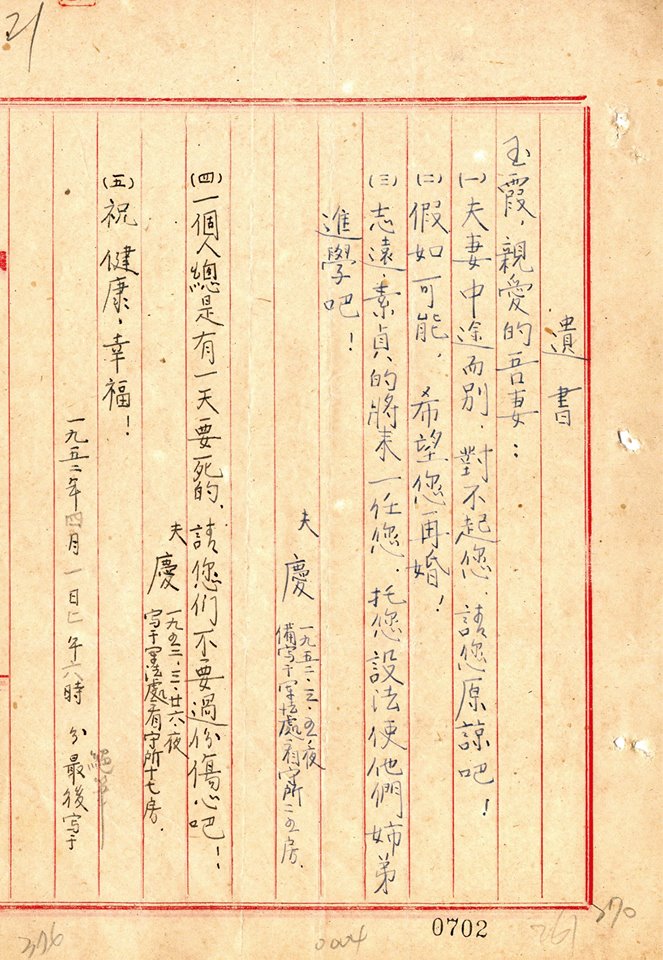 21
遺書
玉霞，親愛的吾妻：
(一)夫妻中途而別，對不起您，請您原諒吧！
(二)假如可能，希望您再婚！
(三)志遠，素貞的將來一任您，托您設法使他們姉弟
進學吧！
夫 慶
一九五二、三、五、夜
備写于軍法處看守所二五房．
(四)一個人總是有一天要死的，請您们不要過份傷心吧！
夫 慶
一九五二、三、廿六、夜
写于軍法處看守所十七房．
(五)祝 健康，幸福！
一九五二年四月一日上午六時 分 最後写于
絕筆
0702
376
0004
261
370